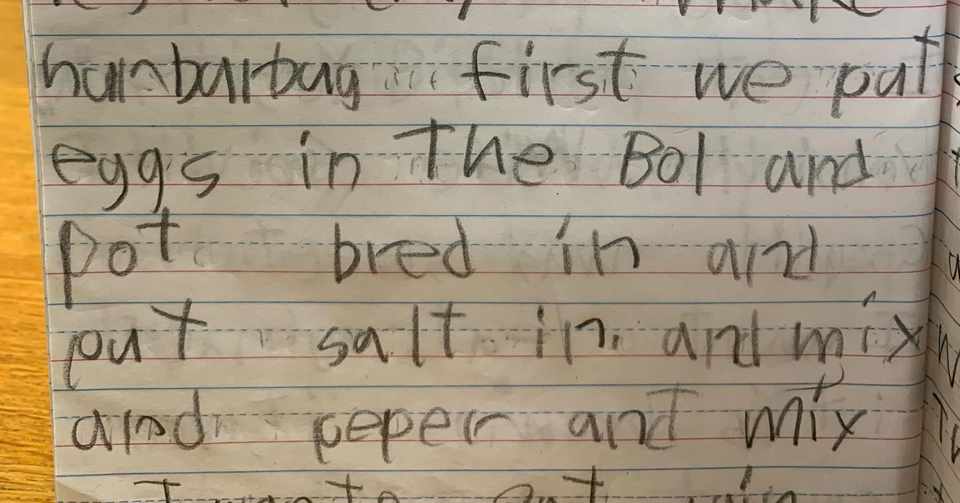 hambarbag first we put
eggs in The Bol and
pot bred in and
put salt in. and mix
and peper and mix